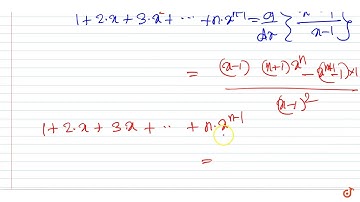 1+2·x+3·x²+ ··· +n·xⁿ⁻¹ = d/dx { - 1 / x-1 }
= (x-1) (n+1)xⁿ - (xⁿ⁺¹-1)×1 / (x-1)²
1+2·x+3x+ ·· + n·xⁿ⁻¹
=